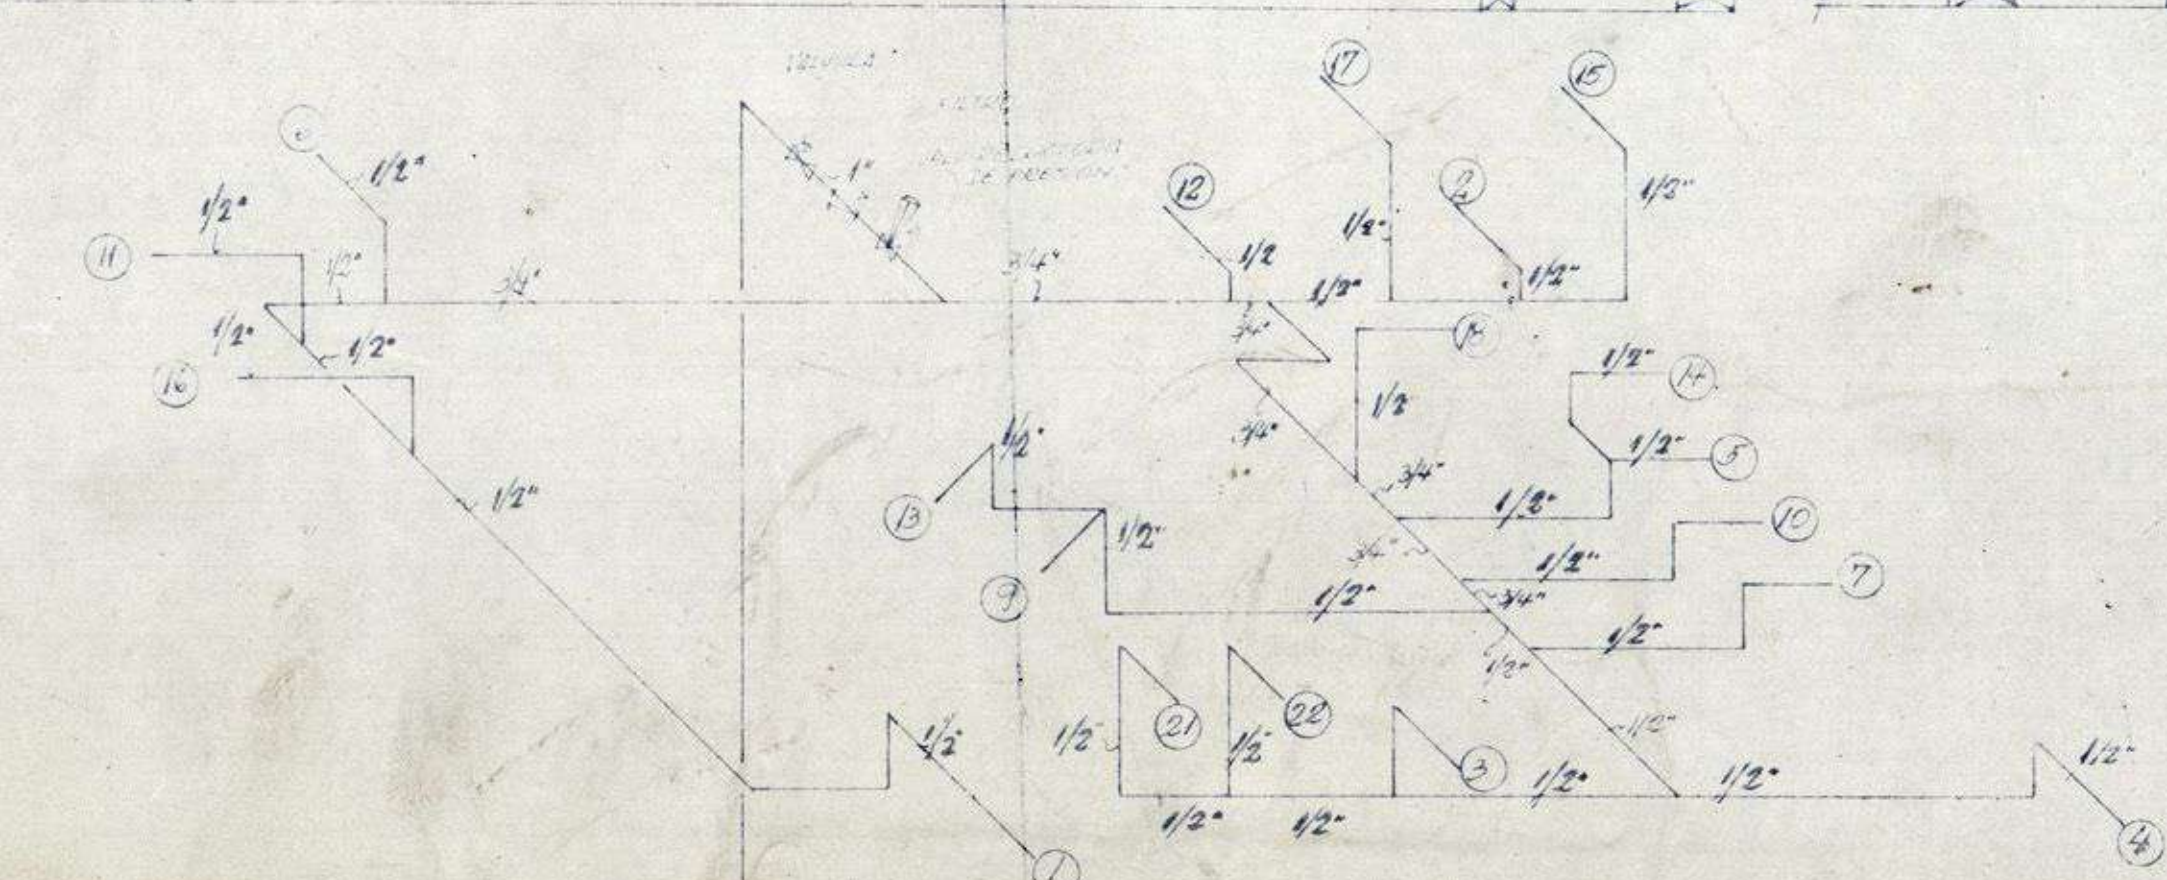 17
15
VALVULA
FILTRO
1/2"
1"
12
2
1/2"
1/2"
11
1/2"
3/4"
3/4"
1/2
1/2"
1/2"
1/2"
1/2"
1/2"
3/4"
16
1/2"
1/2"
14
3/4"
1/2
1/2"
1/2"
5
3/4"
1/2"
1/2"
13
1/2"
10
3/4"
1/2"
9
1/2"
3/4"
7
1/2"
1/2"
21
22
1/2"
1/2"
1/2"
1/2"
3
1/2"
1/2"
1/2"
1/2"
1/2"
1
4